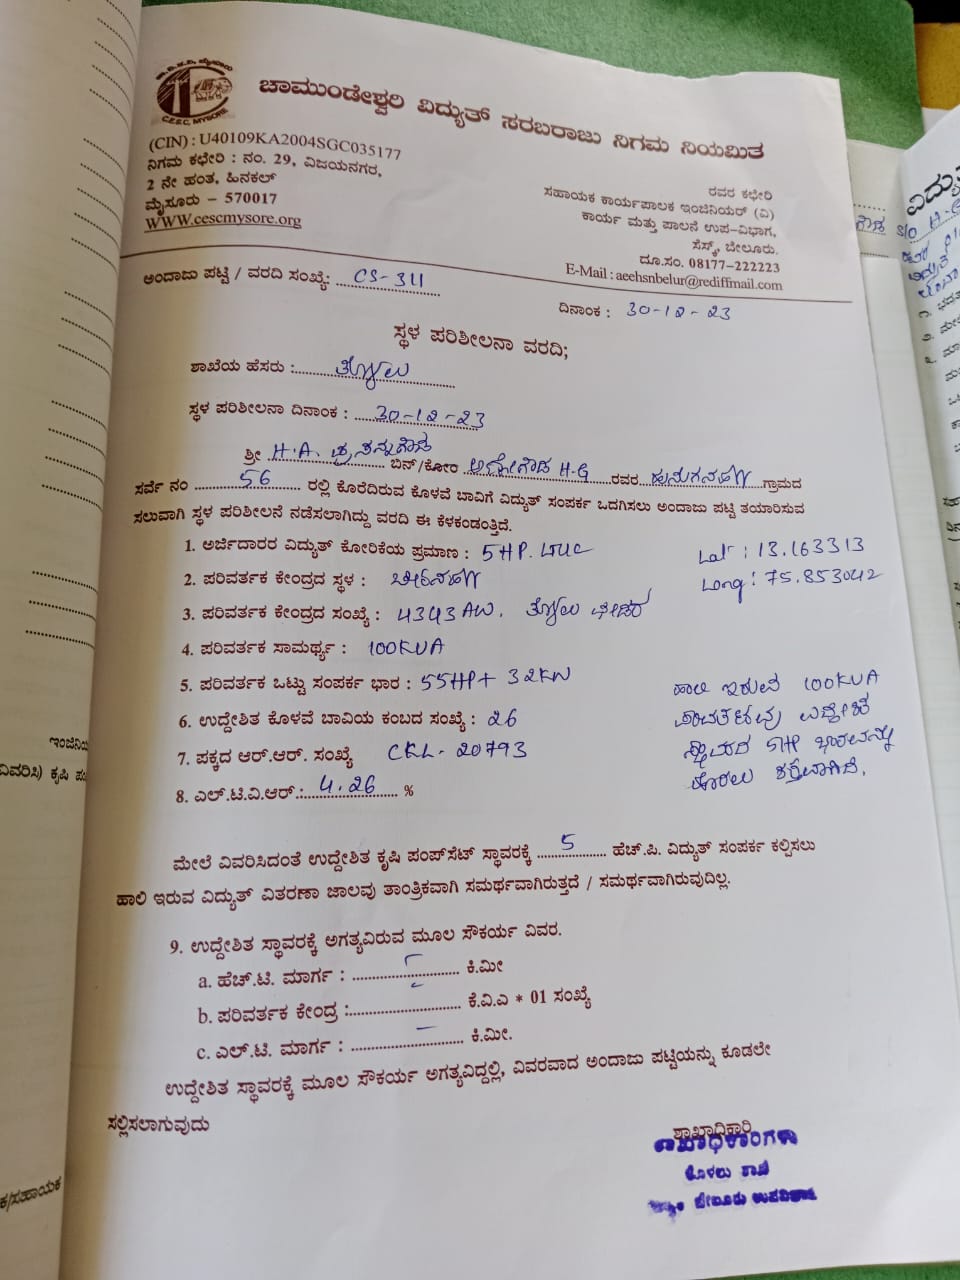 ಚಾಮುಂಡೇಶ್ವರಿ ವಿದ್ಯುತ್ ಸರಬರಾಜು ನಿಗಮ ನಿಯಮಿತ
C.E.S.C. MYSORE
(CIN) : U40109KA2004SGC035177
ನಿಗಮ ಕಛೇರಿ : ನಂ. 29, ವಿಜಯನಗರ,
2 ನೇ ಹಂತ, ಹಿನಕಲ್
ಮೈಸೂರು – 570017
WWW.cescmysore.org
ರವರ ಕಛೇರಿ
ಸಹಾಯಕ ಕಾರ್ಯಪಾಲಕ ಇಂಜಿನಿಯರ್ (ವಿ)
ಕಾರ್ಯ ಮತ್ತು ಪಾಲನೆ ಉಪ-ವಿಭಾಗ,
ಸೆಸ್ಕ್, ಬೇಲೂರು.
ದೂ.ಸಂ. 08177-222223
E-Mail : aeehsnbelur@rediffmail.com
ಅಂದಾಜು ಪಟ್ಟಿ / ವರದಿ ಸಂಖ್ಯೆ: CS-311
ದಿನಾಂಕ : 30-12-23
ಸ್ಥಳ ಪರಿಶೀಲನಾ ವರದಿ;
ಶಾಖೆಯ ಹೆಸರು :
ಸ್ಥಳ ಪರಿಶೀಲನಾ ದಿನಾಂಕ : 30-12-23
ಶ್ರೀ H.A. ಪ್ರಸನ್ನಗೌಡ ಬಿನ್/ಕೋಂ H.G ರವರ ಗ್ರಾಮದ
ಸರ್ವೆ ನಂ 56 ರಲ್ಲಿ ಕೊರೆದಿರುವ ಕೊಳವೆ ಬಾವಿಗೆ ವಿದ್ಯುತ್ ಸಂಪರ್ಕ ಒದಗಿಸಲು ಅಂದಾಜು ಪಟ್ಟಿ ತಯಾರಿಸುವ
ಸಲುವಾಗಿ ಸ್ಥಳ ಪರಿಶೀಲನೆ ನಡೆಸಲಾಗಿದ್ದು ವರದಿ ಈ ಕೆಳಕಂಡಂತ್ತಿದೆ.
1. ಅರ್ಜಿದಾರರ ವಿದ್ಯುತ್ ಕೋರಿಕೆಯ ಪ್ರಮಾಣ : 5HP
Lat : 13.163313
2. ಪರಿವರ್ತಕ ಕೇಂದ್ರದ ಸ್ಥಳ :
Long : 75.853042
3. ಪರಿವರ್ತಕ ಕೇಂದ್ರದ ಸಂಖ್ಯೆ : 4343
4. ಪರಿವರ್ತಕ ಸಾಮರ್ಥ್ಯ : 100KVA
5. ಪರಿವರ್ತಕ ಒಟ್ಟು ಸಂಪರ್ಕ ಭಾರ : 55HP + 32KW
6. ಉದ್ದೇಶಿತ ಕೊಳವೆ ಬಾವಿಯ ಕಂಬದ ಸಂಖ್ಯೆ : 26
7. ಪಕ್ಕದ ಆರ್.ಆರ್. ಸಂಖ್ಯೆ CKL- 20793
8. ಎಲ್.ಟಿ.ವಿ.ಆರ್.: 4.26 %
ಹಾಲಿ ಇರುವ 100KVA
ಪರಿವರ್ತಕವು ಉದ್ದೇಶಿತ
ಸ್ಥಾವರದ 5HP ಭಾರವನ್ನು
ಮೇಲೆ ವಿವರಿಸಿದಂತೆ ಉದ್ದೇಶಿತ ಕೃಷಿ ಪಂಪ್‌ಸೆಟ್ ಸ್ಥಾವರಕ್ಕೆ 5 ಹೆಚ್.ಪಿ. ವಿದ್ಯುತ್ ಸಂಪರ್ಕ ಕಲ್ಪಿಸಲು
ಹಾಲಿ ಇರುವ ವಿದ್ಯುತ್ ವಿತರಣಾ ಜಾಲವು ತಾಂತ್ರಿಕವಾಗಿ ಸಮರ್ಥವಾಗಿರುತ್ತದೆ / ಸಮರ್ಥವಾಗಿರುವುದಿಲ್ಲ.
9. ಉದ್ದೇಶಿತ ಸ್ಥಾವರಕ್ಕೆ ಅಗತ್ಯವಿರುವ ಮೂಲ ಸೌಕರ್ಯ ವಿವರ.
a. ಹೆಚ್.ಟಿ. ಮಾರ್ಗ : ಕಿ.ಮೀ
b. ಪರಿವರ್ತಕ ಕೇಂದ್ರ : ಕೆ.ವಿ.ಎ * 01 ಸಂಖ್ಯೆ
c. ಎಲ್.ಟಿ. ಮಾರ್ಗ : ಕಿ.ಮೀ.
ಉದ್ದೇಶಿತ ಸ್ಥಾವರಕ್ಕೆ ಮೂಲ ಸೌಕರ್ಯ ಅಗತ್ಯವಿದ್ದಲ್ಲಿ, ವಿವರವಾದ ಅಂದಾಜು ಪಟ್ಟಿಯನ್ನು ಕೂಡಲೇ
ಸಲ್ಲಿಸಲಾಗುವುದು
ಶಾಖಾಧಿಕಾರಿ
ಶಾಖಾಧಿಕಾರಿಗಳು
ಬೇಲೂರು ಉಪವಿಭಾಗ